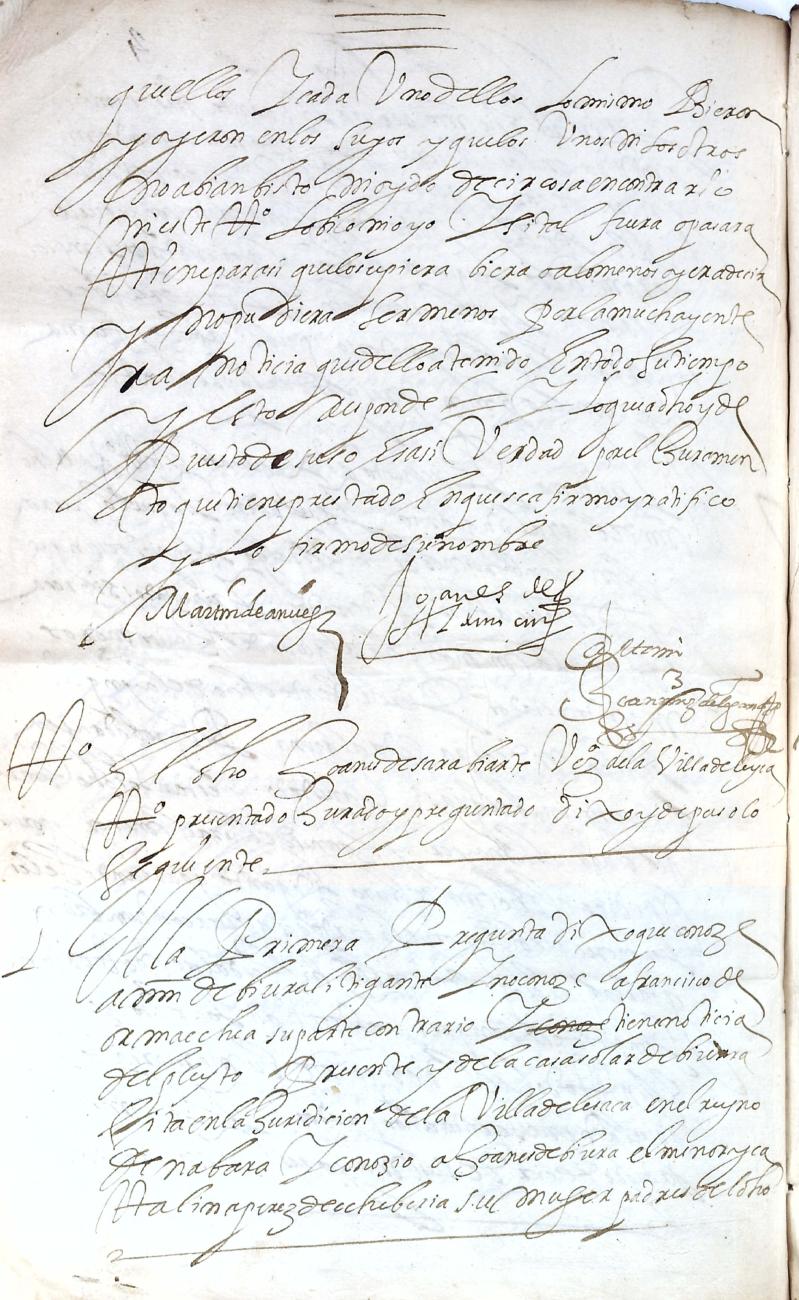 quellos y cada Uno dellos lo mismo Bieron
y oyeron en los suyos y quelos Unos ni los otros
no abian bisto ni oydo decir cosa en contrario
ni este tt.º lo bio ni oyo y si tal fuera o pasara
tt.º tiene para si quelo supiera biera o alomenos oyera decir
y no pudiera ser menos Por la mucha gente
y noticia que dello a tenido En todo su tiempo
y Esto Responde = y lo que a dho y de
Puesto de suso Es asi Verdad por el Juramen
to que tiene prestado En que se afirmo y ratifico
y Lo firmo de su nombre
Martin de anues
Joanes de
Ante mi
tt.º El dho Joanes de sarabiarte Vez.º de la Villa de lesaca
tt.º presentado Jurado y preguntado dixo y depuso lo
seguiente
1 A la Primera Pregunta dixo que conoze
a mrn de biura litigante y no conoze a francisco de
ormaechea su parte contrario Y conoz tiene noticia
del pleyto Presente y de la casa solar de biurra
sita en la Juridicion de la Villa de lesaca en el reyno
de nabara y conozio a Joanes de biura el menor y ca
talina perez de echeberia su muger padres del dho